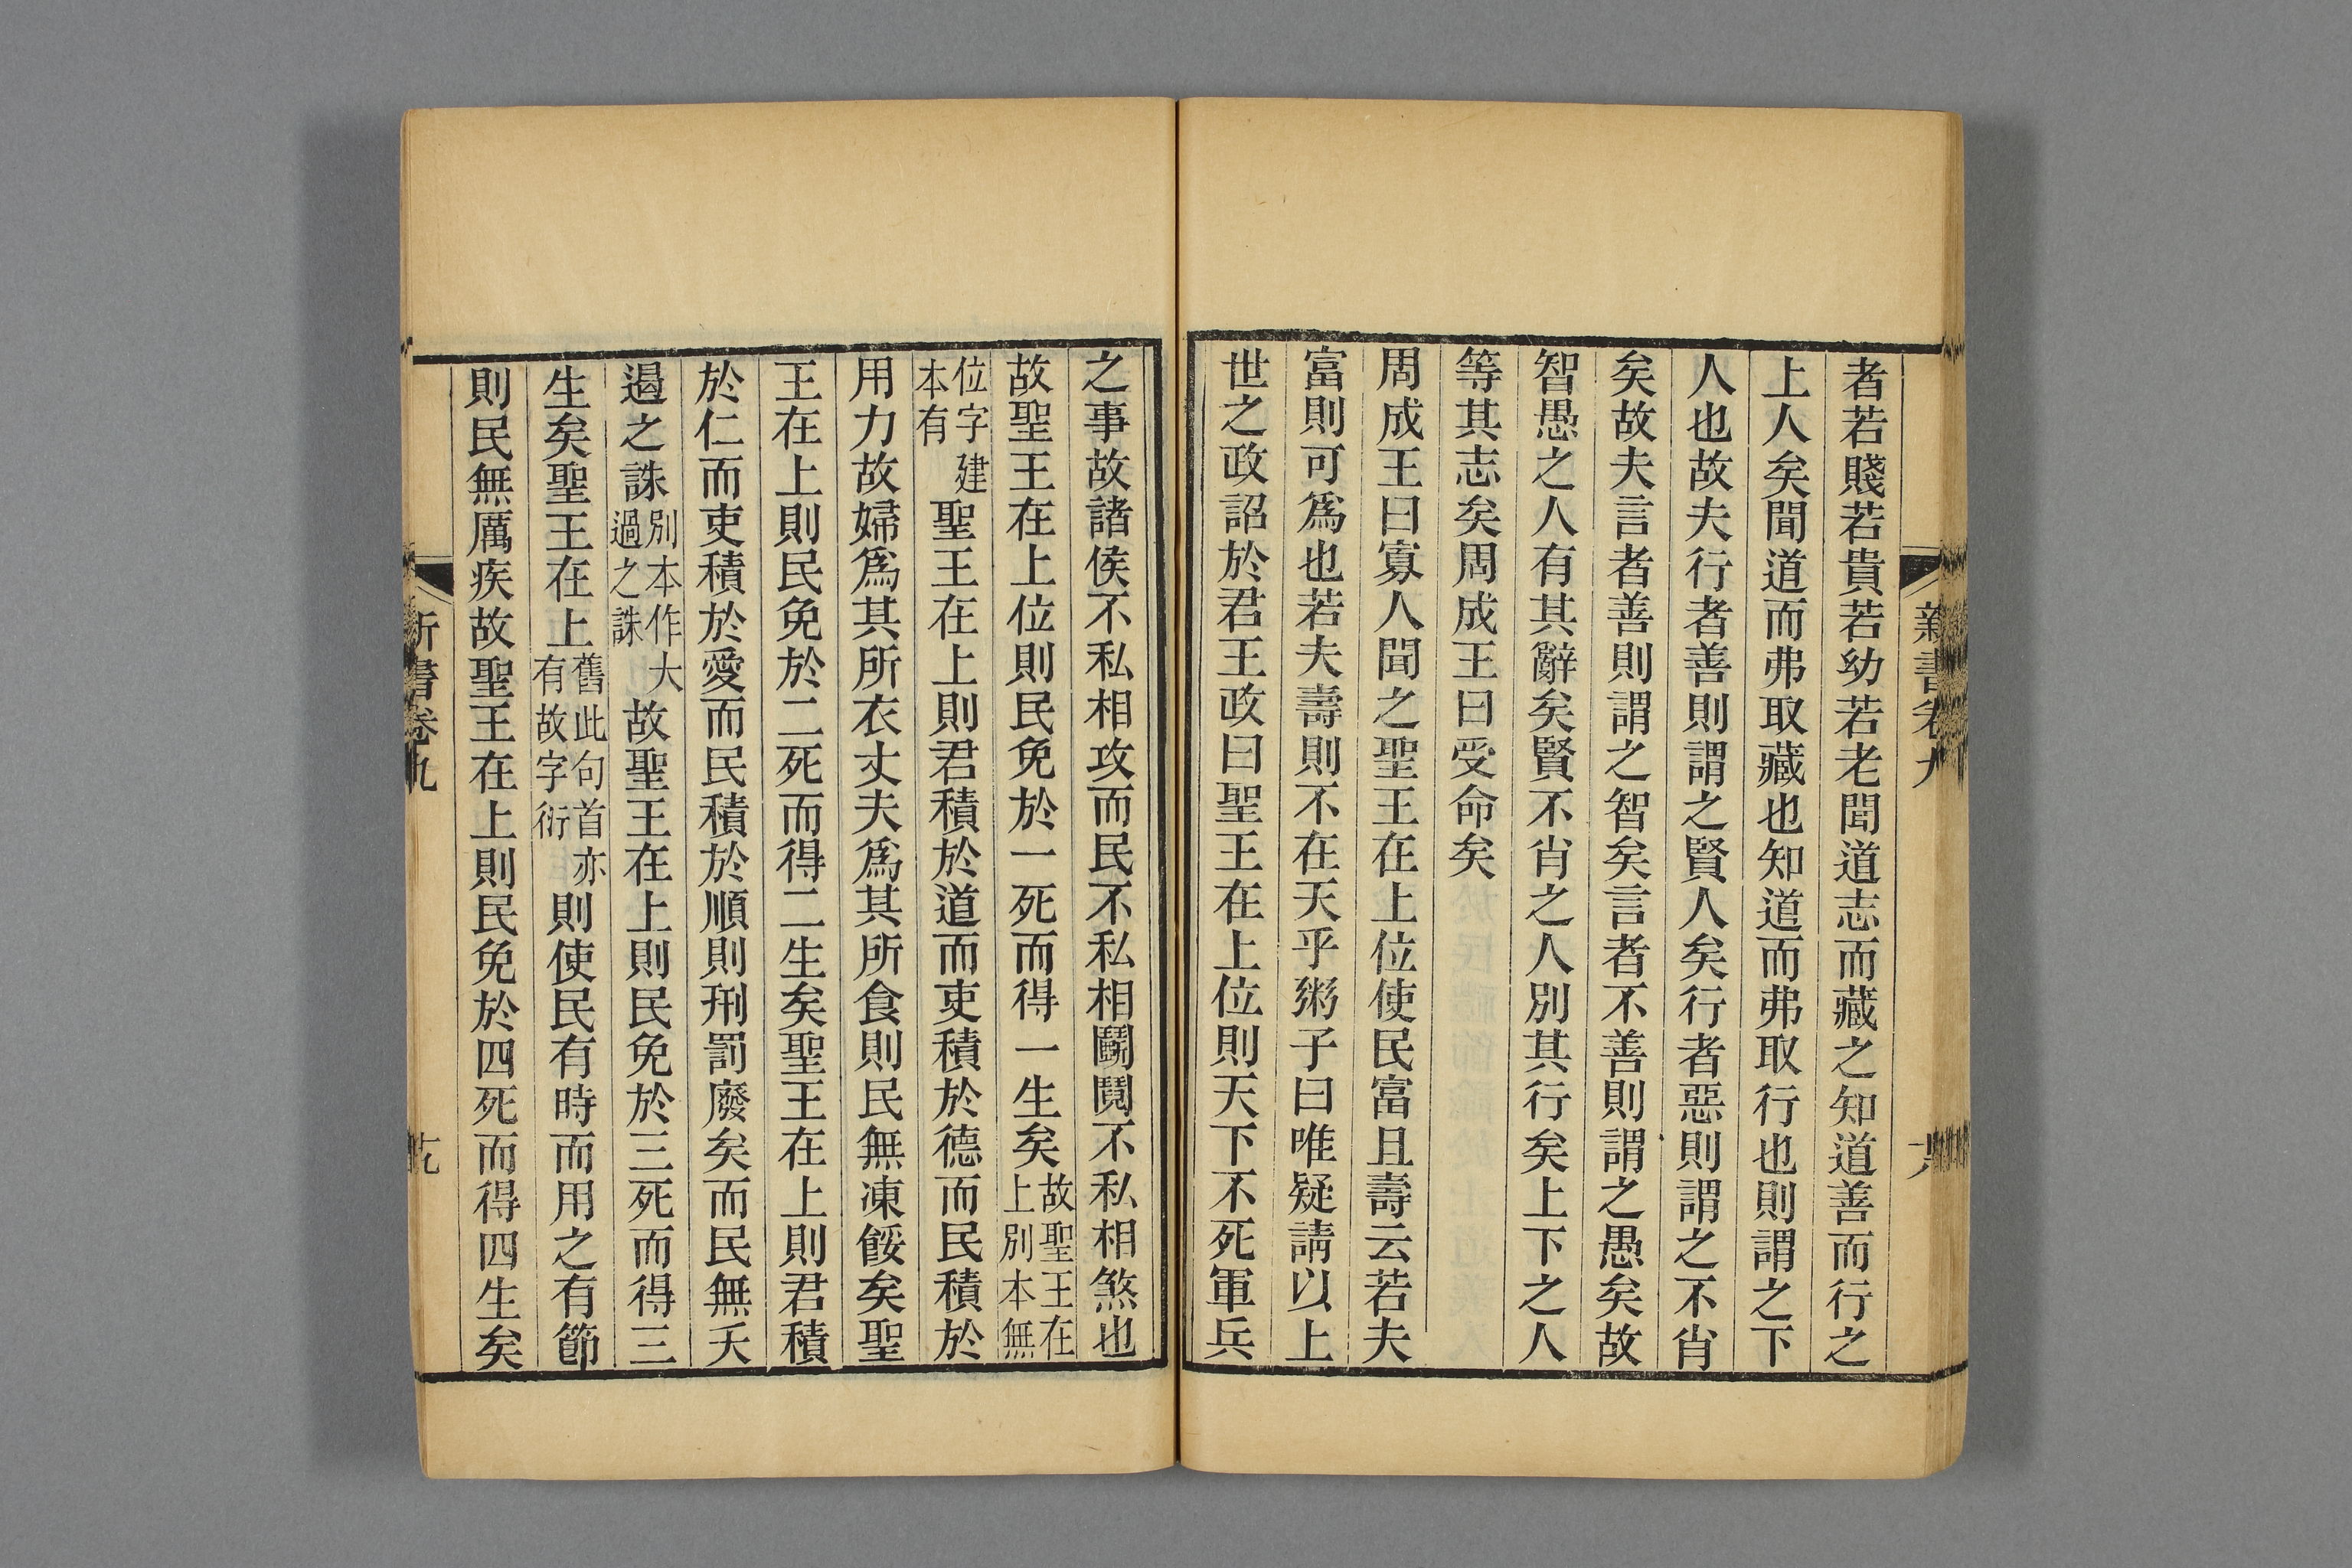 新書卷九
者若賤若貴若幼若老聞道志而藏之知道善而行之
上人矣聞道而弗取藏也知道而弗取行也則謂之下
人也故夫行者善則謂之賢人矣行者惡則謂之不肖
矣故夫言者善則謂之智矣言者不善則謂之愚矣故
智愚之人有其辭矣賢不肖之人別其行矣上下之人
等其志矣周成王曰受命矣
周成王曰寡人聞之聖王在上位使民富且壽云若夫
富則可爲也若夫壽則不在天乎粥子曰唯疑請以上
世之政詔於君王政曰聖王在上位則天下不死軍兵
之事故諸侯不私相攻而民不私相鬭鬩不私相煞也
故聖王在上位則民免於一死而得一生矣故聖王在上別本無
位字建本有聖王在上則君積於道而吏積於德而民積於
用力故婦爲其所衣丈夫爲其所食則民無凍餒矣聖
王在上則民免於二死而得二生矣聖王在上則君積
於仁而吏積於愛而民積於順則刑罰廢矣而民無夭
遏之誅別本作大過之誅故聖王在上則民免於三死而得三
生矣聖王在上舊此句首亦有故字衍則使民有時而用之有節
則民無厲疾故聖王在上則民免於四死而得四生矣
新書卷九